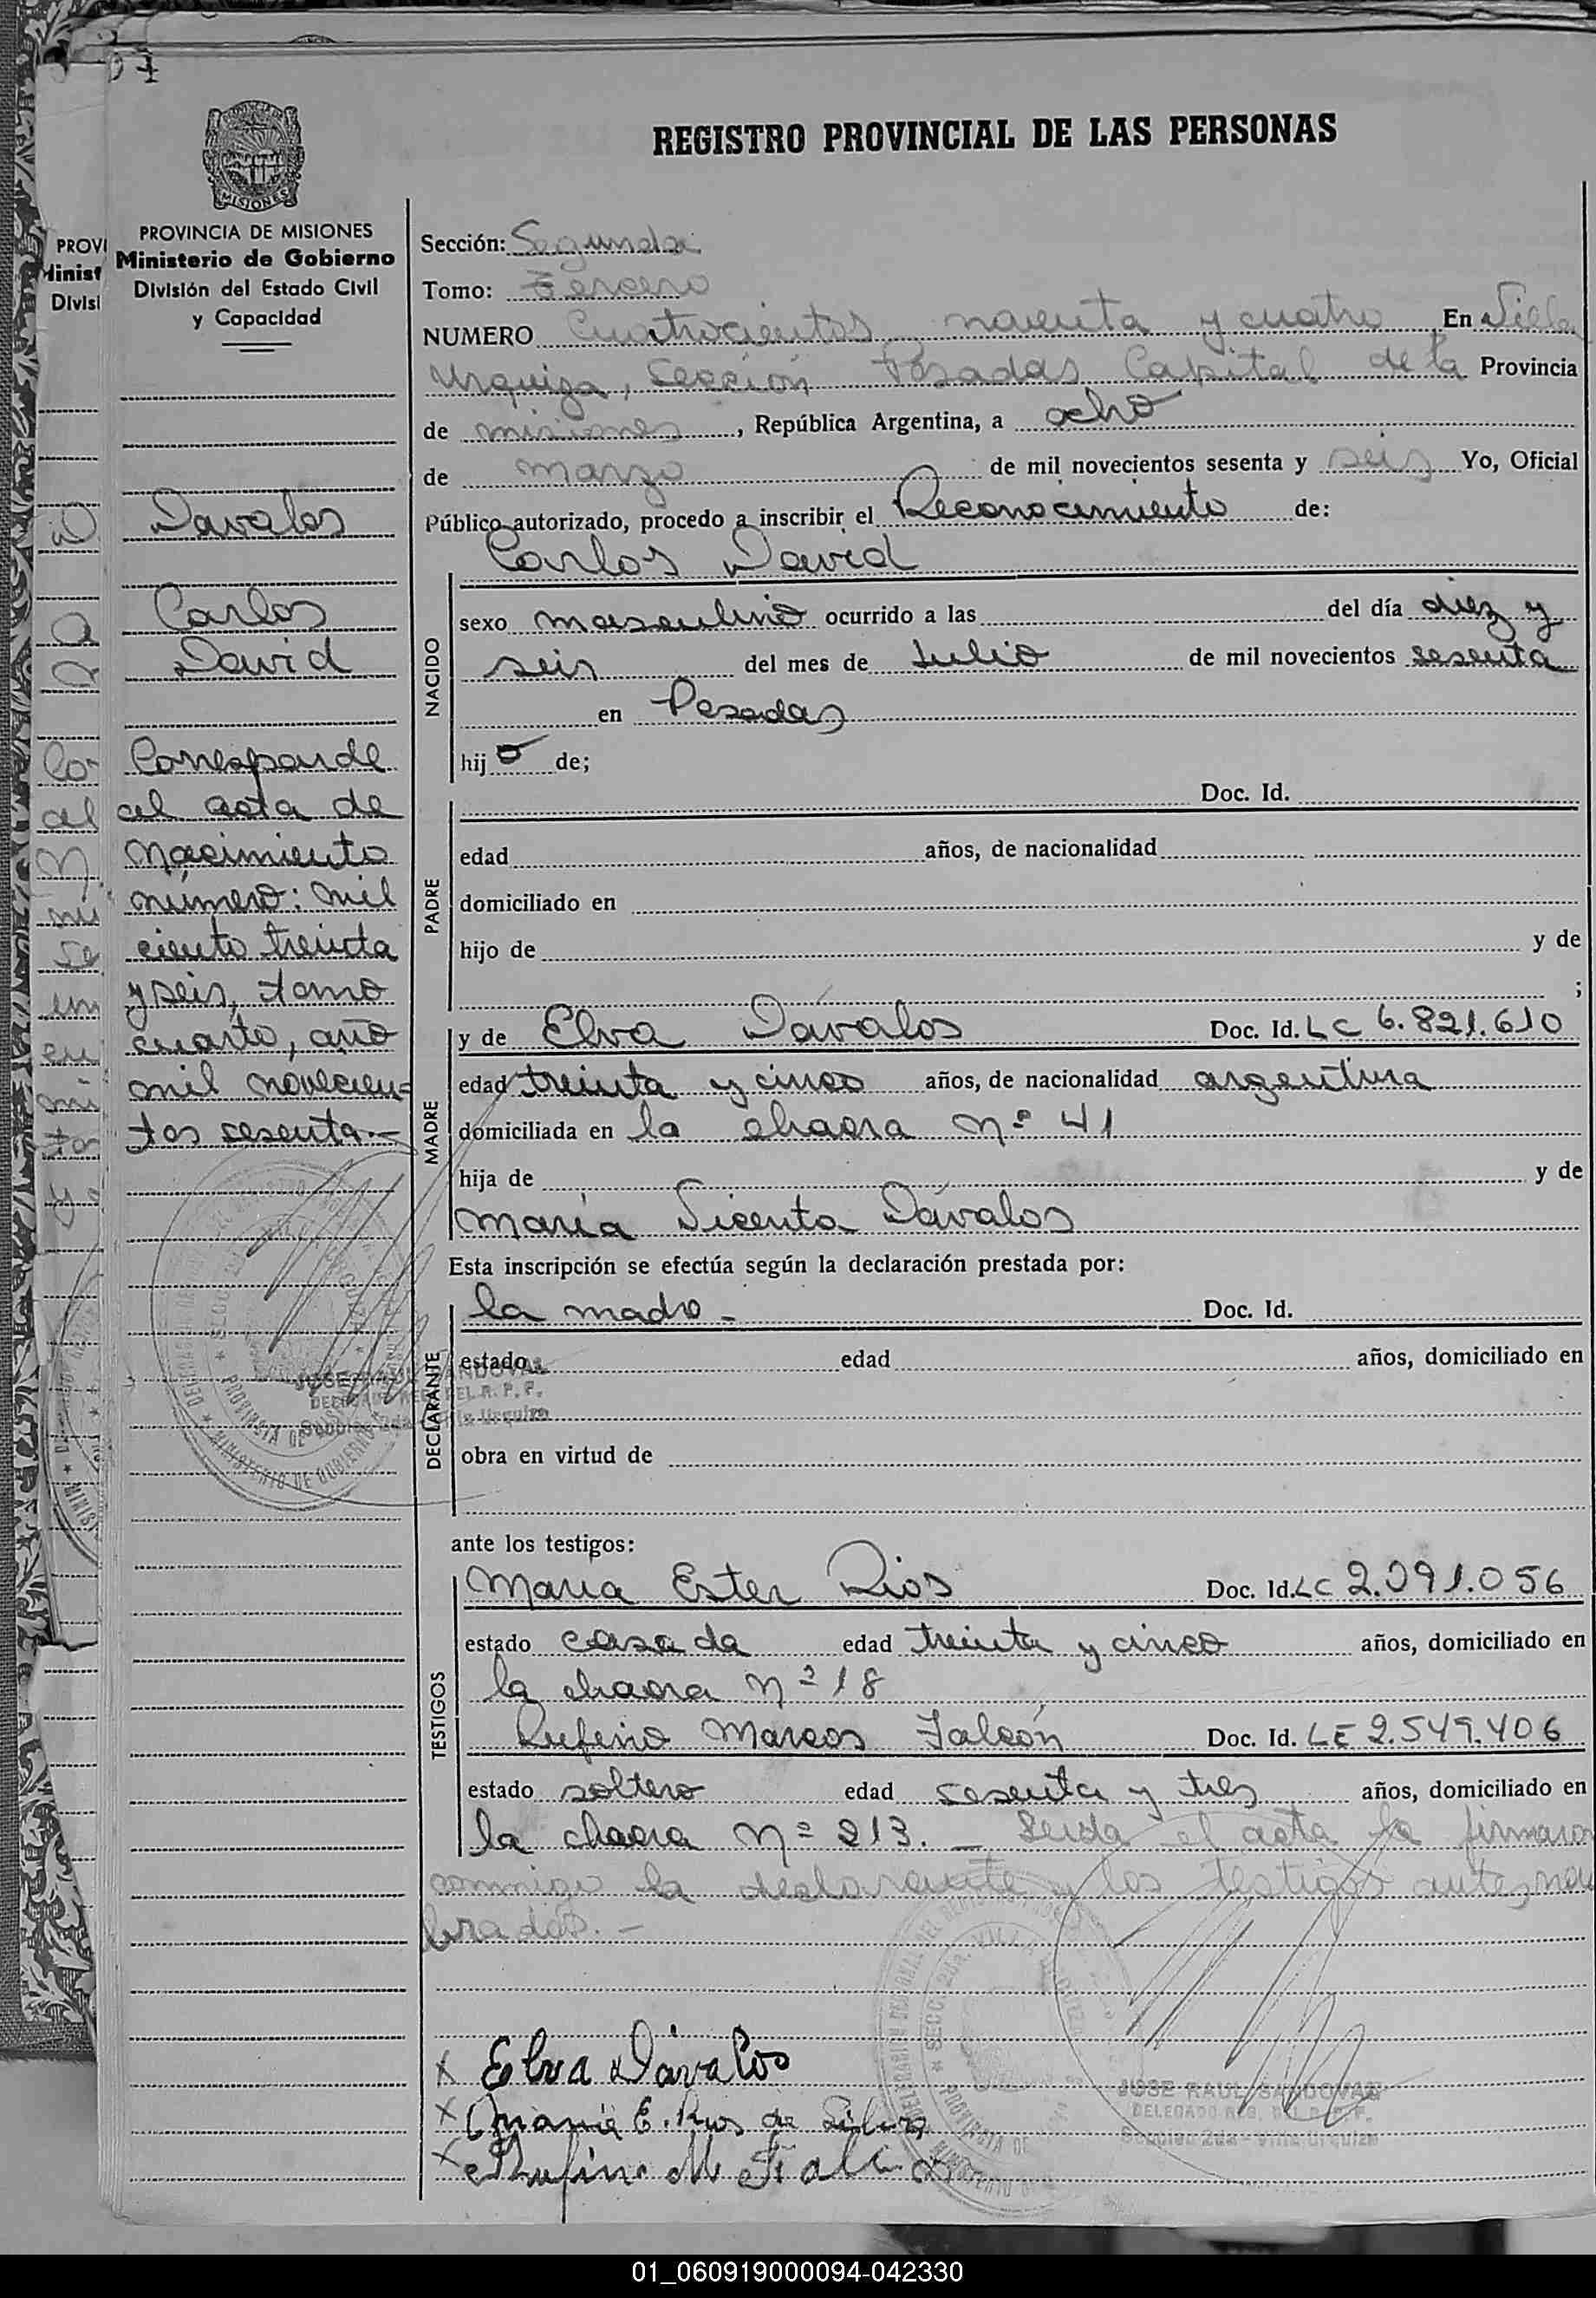 REGISTRO PROVINCIAL DE LAS PERSONAS
PROVINCIA DE MISIONES
Ministerio de Gobierno
División del Estado Civil
y Capacidad
Davalos
Carlos
David
Corresponde
al acta de
Nacimiento
número: mil
ciento treinta
y seis, tomo
cuarto, año
mil novecien-
tos sesenta.-
Sección: Segunda
Tomo: Tercero
NUMERO Cuatrocientos noventa y cuatro En Villa
Urquiza, Sección Posadas Capital de la Provincia
de misiones, República Argentina, a ocho
de marzo de mil novecientos sesenta y seis Yo, Oficial
Público autorizado, procedo a inscribir el Reconocimiento de:
Carlos David
NACIDO
sexo masculino ocurrido a las del día diez y
seis del mes de Julio de mil novecientos sesenta
en Posadas
hij o de;
Doc. Id.
PADRE
edad años, de nacionalidad
domiciliado en
hijo de y de
;
MADRE
y de Elva Davalos Doc. Id. LC 6.821.610
edad treinta y cinco años, de nacionalidad argentina
domiciliada en la chacra Nº 41
hija de y de
María Vicenta Dávalos
Esta inscripción se efectúa según la declaración prestada por:
DECLARANTE
la madre - Doc. Id.
estado edad años, domiciliado en
obra en virtud de
ante los testigos:
TESTIGOS
Maria Ester Rios Doc. Id. LC 2.091.056
estado casada edad treinta y cinco años, domiciliado en
la chacra Nº 18
Rufino Marcos Falcón Doc. Id. LE 2.549.406
estado soltero edad sesenta y tres años, domiciliado en
la chacra Nº 213. - Leida el acta la firmaron
conmigo la declarante y los testigos antes nom
brados. -
x Elva Dávalos
x Maria E. Rios de
x Rufino M Falcón
JOSE RAUL SANDOVAL
DELEGADO REG. DEL R. P. P.
Sección 2da - Villa Urquiza
01_060919000094-042330